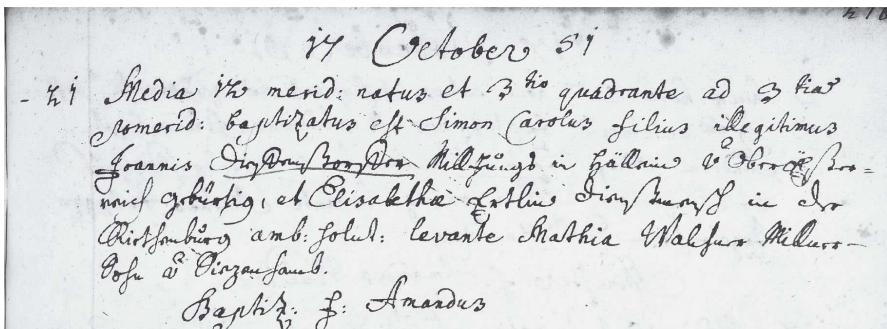 17 October 51
21 Media 12 merid: natus et 3 tio quadrante ad 3 tiam
pomerid: baptizatus est Simon Carolus filius illegitimus
Joannis Milljungs in Hällein v Oberösster=
reich gebürtig, et Elisabethæ Ertlin Dienstmensch in der
Riethenburg amb: solut: levante Mathia Walcher Millner-
Sohn v
Baptiz: P: Amandus